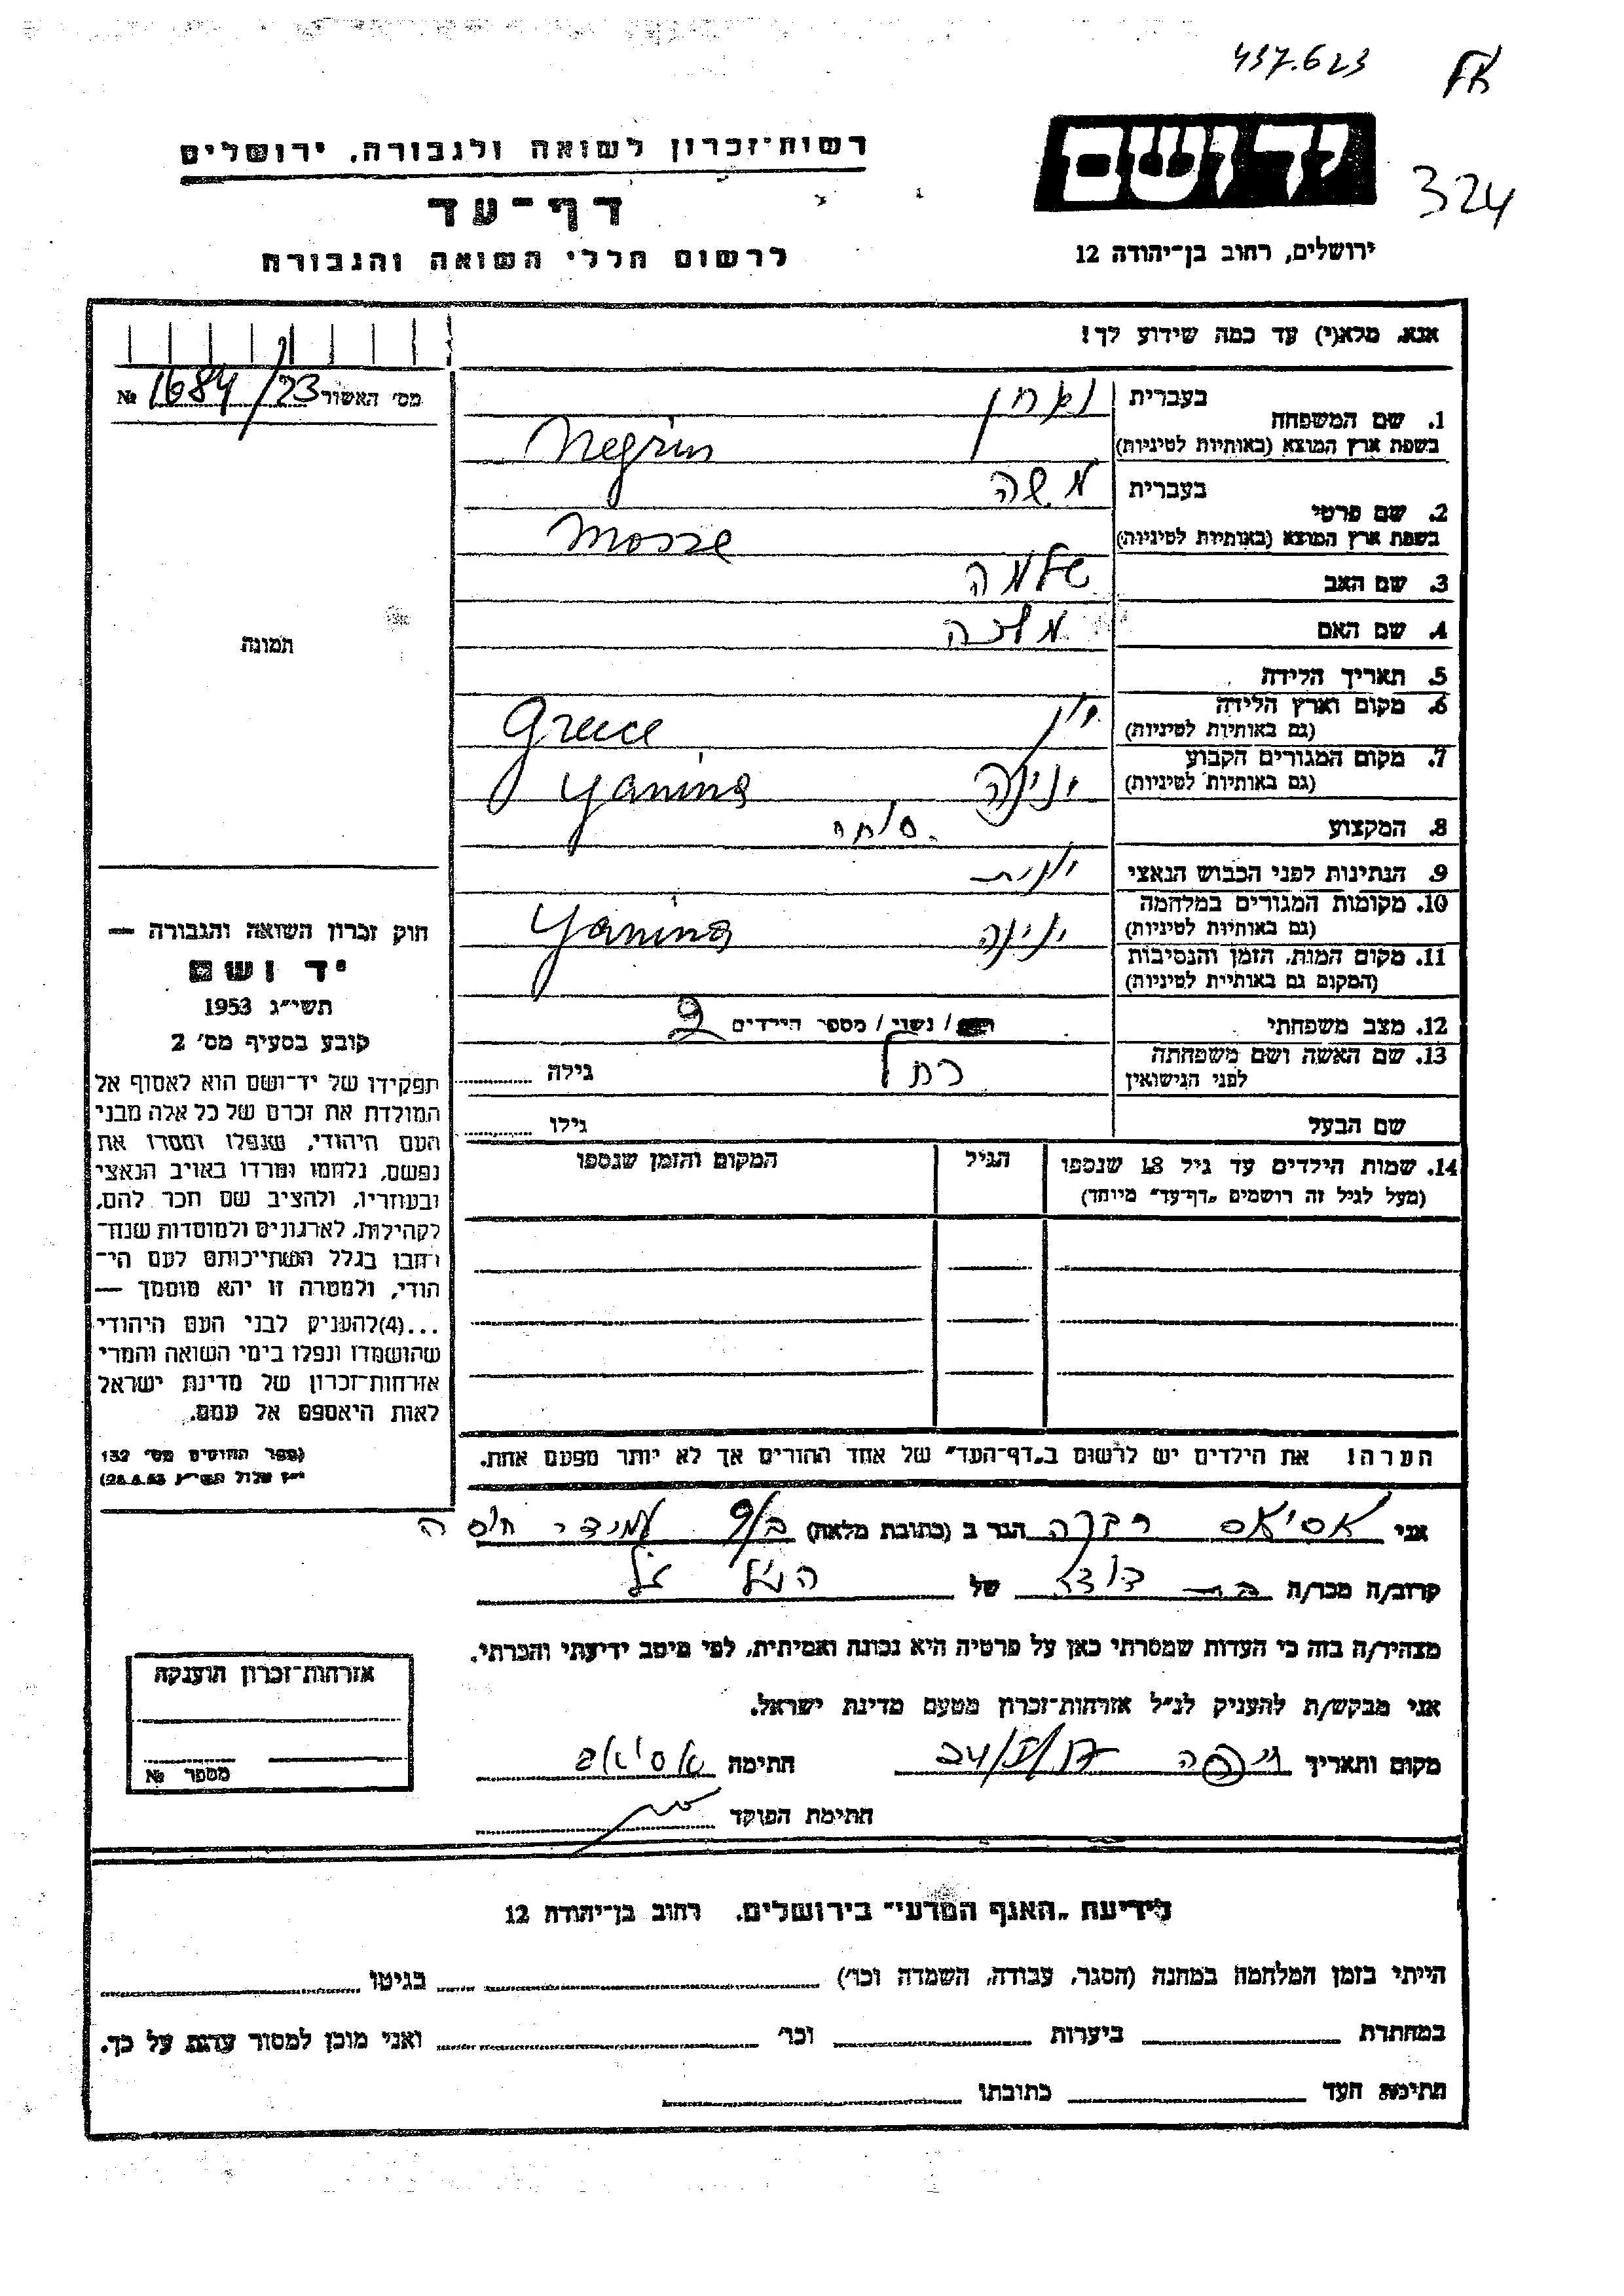 437.623
324
יד ושם
רשות־זכרון לשואה ולגבורה, ירושלים
דף־עד
לרשום חללי השואה והגבורה
ירושלים, רחוב בן־יהודה 12
אנא, מלא(י) עד כמה שידוע לך!
מס׳ האשור 1684/23 №
1. שם המשפחה
בעברית
בשפת ארץ המוצא (באותיות לטיניות) Negrin
2. שם פרטי
בעברית משה
בשפת ארץ המוצא (באותיות לטיניות) mosse
3. שם האב שלמה
4. שם האם מלכה
5. תאריך הלידה
6. מקום וארץ הלידה
(גם באותיות לטיניות) יון Greece
7. מקום המגורים הקבוע
(גם באותיות לטיניות) ינינה yanina
8. המקצוע סוחר
9. הנתינות לפני הכבוש הנאצי יונית
10. מקומות המגורים במלחמה
(גם באותיות לטיניות) ינינה yanina
11. מקום המות, הזמן והנסיבות
(המקום גם באותיות לטיניות)
12. מצב משפחתי / נשוי / מספר הילדים 2
13. שם האשה ושם משפחתה
לפני הנישואין גילה
שם הבעל גילו
14. שמות הילדים עד גיל 18 שנספו
(מעל לגיל זה רושמים „דף־עד״ מיוחד)
הגיל
המקום והזמן שנספו
תמונה
חוק זכרון השואה והגבורה —
יד ושם
תשי״ג 1953
קובע בסעיף מס׳ 2
תפקידו של יד־ושם הוא לאסוף אל
המולדת את זכרם של כל אלה מבני
העם היהודי, שנפלו ומסרו את
נפשם, נלחמו ומרדו באויב הנאצי
ובעוזריו, ולהציב שם וזכר להם,
לקהילות, לארגונים ולמוסדות שנח־
רחבו בגלל השתייכותם לעם הי־
הודי, ולמטרה זו יהא מוסמך —
...(4)להעניק לבני העם היהודי
שהושמדו ונפלו בימי השואה והמרי
אזרחות־זכרון של מדינת ישראל
לאות היאספם אל עמם.
(ספר החוקים מס׳ 132
י״ז אלול תשי״ג 28.8.53)
הערה! את הילדים יש לרשום ב„דף־העד״ של אחד ההורים אך לא יותר מפעם אחת.
אני אסיאס רבקה הגר ב (כתובת מלאה) חיפה
קרוב/ה מכר/ה בת דודו של הנ״ל
מצהיר/ה בזה כי העדות שמסרתי כאן על פרטיה היא נכונה ואמיתית, לפי מיטב ידיעתי והכרתי.
אני מבקש/ת להעניק לנ״ל אזרחות־זכרון מטעם מדינת ישראל.
מקום ותאריך חיפה חתימה אסיאס
חתימת הפוקד
אזרחות־זכרון הוענקה
מספר №
לידיעת „האגף המדעי״ בירושלים, רחוב בן־יהודה 12
הייתי בזמן המלחמה במחנה (הסגר, עבודה, השמדה וכו׳) בגיטו
במחתרת ביערות וכו׳ ואני מוכן למסור עדות על כך.
חתימת העד כתובתו